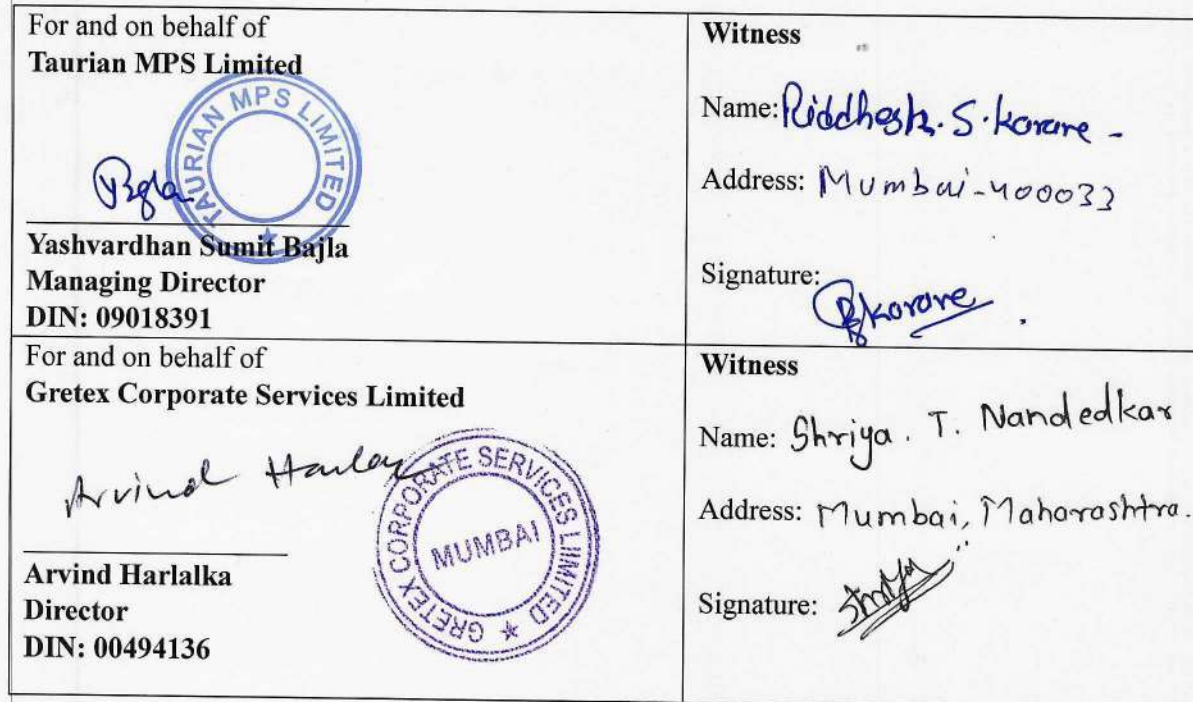 For and on behalf of
Taurian MPS Limited
TAURIAN MPS LIMITED
Bajla
Yashvardhan Sumit Bajla
Managing Director
DIN: 09018391
Witness
Name: Riddhesh. S. Korare -
Address: Mumbai-400033
Signature:
Rkorare
For and on behalf of
Gretex Corporate Services Limited
Arvind Harlal
GRETEX CORPORATE SERVICES LIIMITED
MUMBAI
Arvind Harlalka
Director
DIN: 00494136
Witness
Name: Shriya. T. Nandedkar
Address: Mumbai, Maharashtra.
Signature: